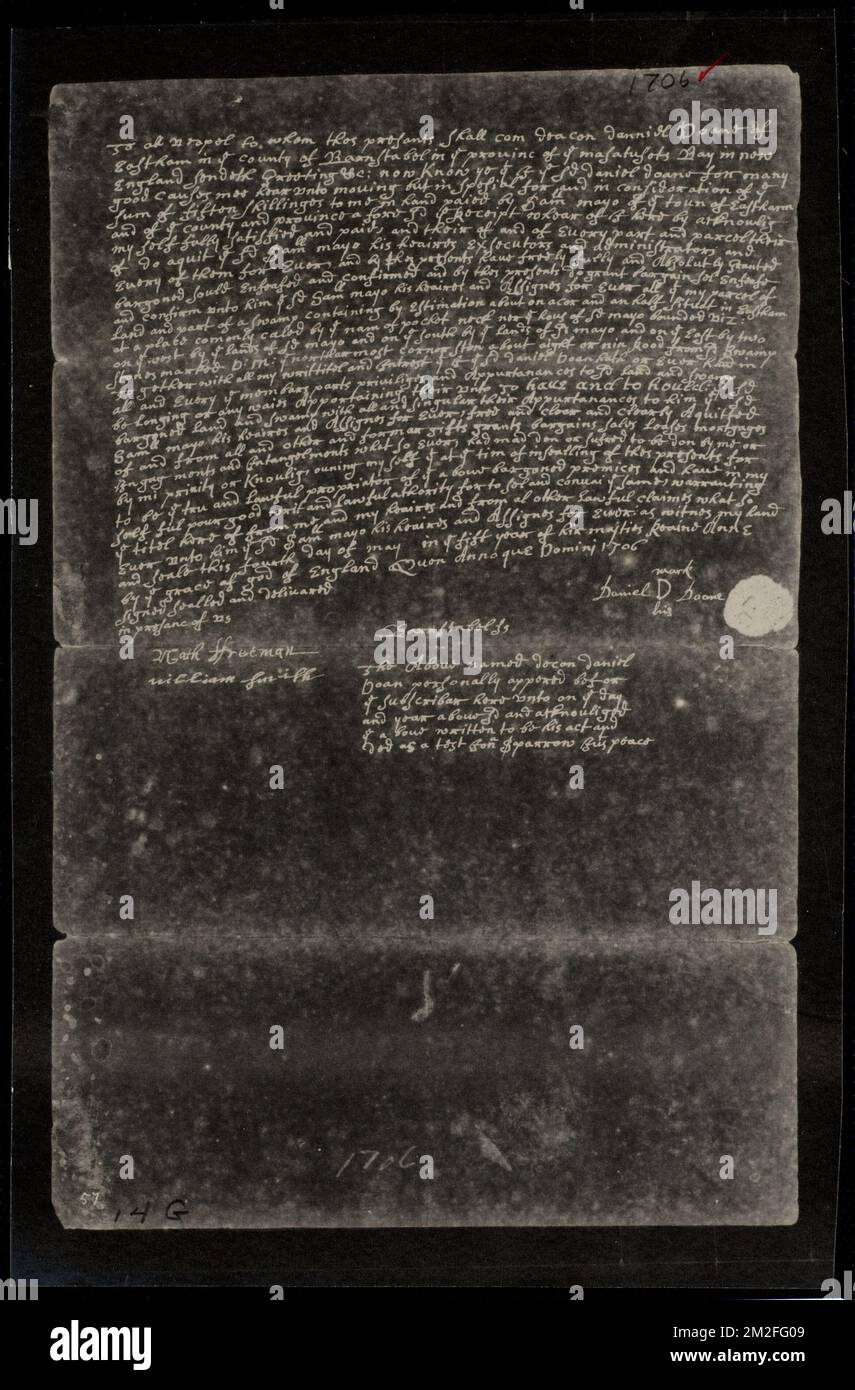 1706
To all peopel to whom thes presants shall com deacon danniel Doane of
Eastham in yᵉ county of Barnstabel in yᵉ provinc of yᵉ masatusets Bay in new
England sendeth Greeting &c: now Know ye yᵗ I yᵉ sd Daniel doane for many
good causes mee hear unto moving but in spesial for and in consideration of yᵉ
sum of fiften skillinges to me in hand paied by Sam mayo of yᵉ town of Eastham
and of yᵉ county and province a fore sd yᵉ Receipt whear of I here by acknoulig
my self fully satisfied and paied and their of and of Every part and parcel their
of do aquit yᵉ sd Sam mayo his heaires Executors and Administrators and
Every of them for Ever and by thes presents have freely fully and Absolutly granted
bargoned sould Enfeofed and confirmed and by thes presents do grant bargain sel Enfeofe
and confirm unto him yᵉ sd Sam mayo his heaires and Assignes for Ever all yᵗ my parcel of
land and part of a swamp containing by Estimation about on acor and an half scituat in Eastham
at a place comonly caled by yᵉ nam of pocket neck ner yᵉ hous of sd mayo bounded viz:
on yᵉ west by yᵉ lands of sd mayo and on yᵉ south by yᵉ lands of sd mayo and on yᵉ East by two
stones marked D:M: yᵉ northermost corner ston about eight or nin Rood from sd swamp
together with all my writtitel and intrest yᵗ I yᵉ sd daniel Doan hath or ever had in
all and Every yᵉ members parts priviliges and Appurtanances to sd land and swamp
be longing or any wais Apportaining their unto To have and to hould yᵉ sd
bargoned land and swamp with all and singular their Appurtanances to him yᵉ sd
Sam mayo his heaires and Assignes for Ever: free and cleer and cleerly Aquitted
of and from all and other and formar gifts grants bargains sales leases mortgages
Engagments and Entanglements what so Ever, had mad don or sufred to be don by me or
by my privity or Knoulig: owning my self yᵗ at yᵉ tim of insealling of thes presents for
to be yᵉ tru and lawful propriator of yᵉ a bove bargoned premices and have in my
self ful pour good Writ and lawful athority for to sel and convai yᵉ same: warranting
yᵉ titel here of from me and my heaires and from al other lawful claimes what so
Ever unto him yᵉ sd Sam mayo his heaires and Assignes for Ever: as witnes my hand
and seale this fourth day of may in yᵉ fift year of hir majties Reaine Anne
by yᵉ grace of god of England Quen Annoque Domini 1706
signed sealled and delivared
in presanc of us
mark
Daniel D Doane
his
Nath ffreeman
William smith
Barnstabel ss
The Above named decon daniel
Doan personally appered befor
yᵉ subscribar here unto on yᵉ day
and year above sd and acknouliged
yᵉ a bove written to be his act and
ded as a test Jon Sparrow Jus peace
1706
57
14 G
alamy
alamy
Image ID: 2M2FG09
www.alamy.com